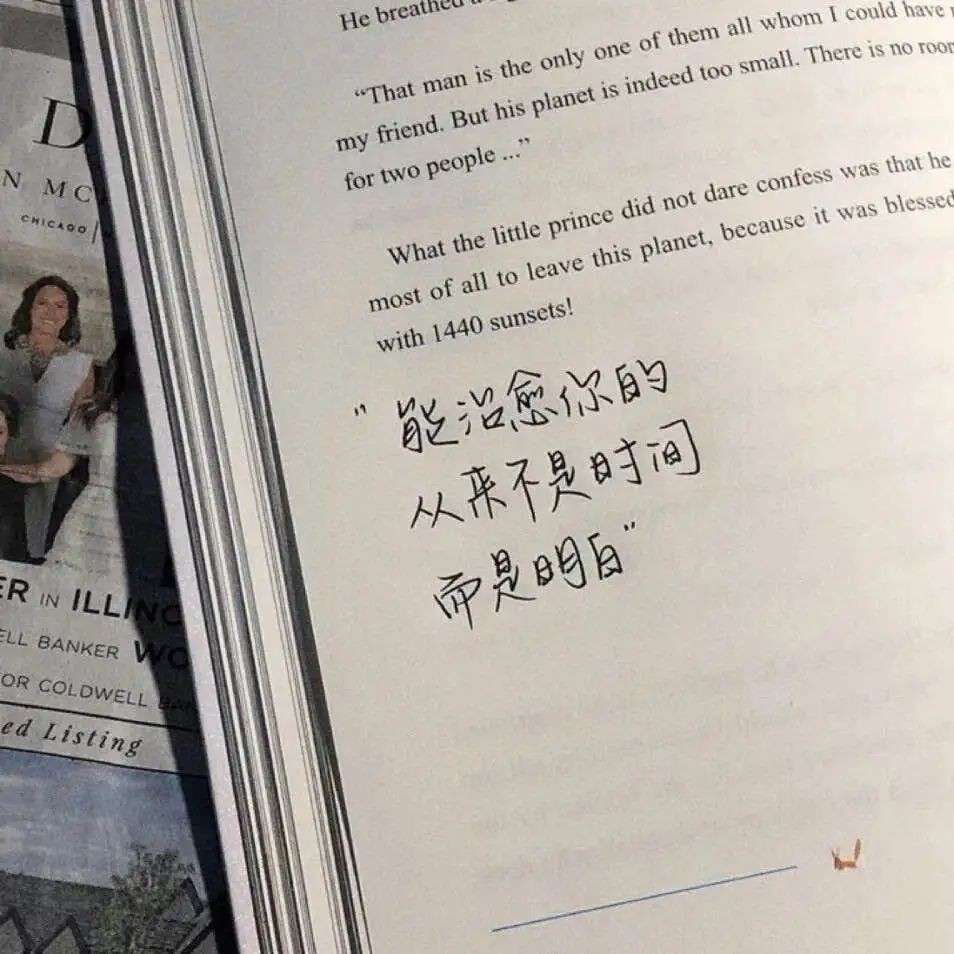 He breathed a
“That man is the only one of them all whom I could have
my friend. But his planet is indeed too small. There is no room
for two people ...”
What the little prince did not dare confess was that he
most of all to leave this planet, because it was blessed
with 1440 sunsets!
"能治愈你的
从来不是时间
而是明白"
D
N MC
CHICAGO
ER IN ILLINO
ELL BANKER WO
OR COLDWELL BA
ed Listing